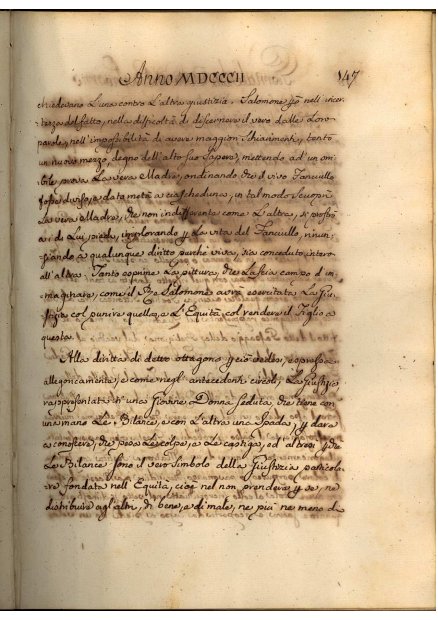 Anno MDCCCII 147
chiedevano L'una contro L'altra giustizia. Salomone nell'incer-
tezza del fatto, nella difficoltà di discernere il vero dalle Loro
parole, nell'impossibilità di avere maggiori Schiarimenti, tentò
un nuovo mezzo, degno dell'alto suo Sapere, mettendo ad un or-
ribile prova La vera Madre, ordinando che il vivo Fanciullo
fosse diviso, e data metà a ciascheduna; in tal modo Scuoprì
La vera Madre, che non indifferente come L'altra, si prostrò
a i di Lui piedi, implorando La vita del Fanciullo, rinun-
ziando a qualunque diritto perché viva, sia conceduto intero
all'altra. Tanto esprime La pittura, che Lascia campo d'im-
maginare, come il Re Salomone avrà esercitata La Giu-
stizia col punire quella, e L'Equità col rendere il Figlio a
questa.
Alla diritta di detto ottagono si vede, espressa
allegoricamente, e come negl'antecedenti circoli, La Giustizia
rappresentata in una Giovine Donna Seduta, che tiene con
una mano Le Bilance, e con L'altra una Spada, dare
a conoscere, che pesa Le colpe, e Le castiga, ed altresì che
Le Bilance sono il vero Simbolo della Giustizia partico-
fondata nell'Equità, cioè nel non prendere ne
distribuire agl'altri, di bene, e di male, ne più ne meno di